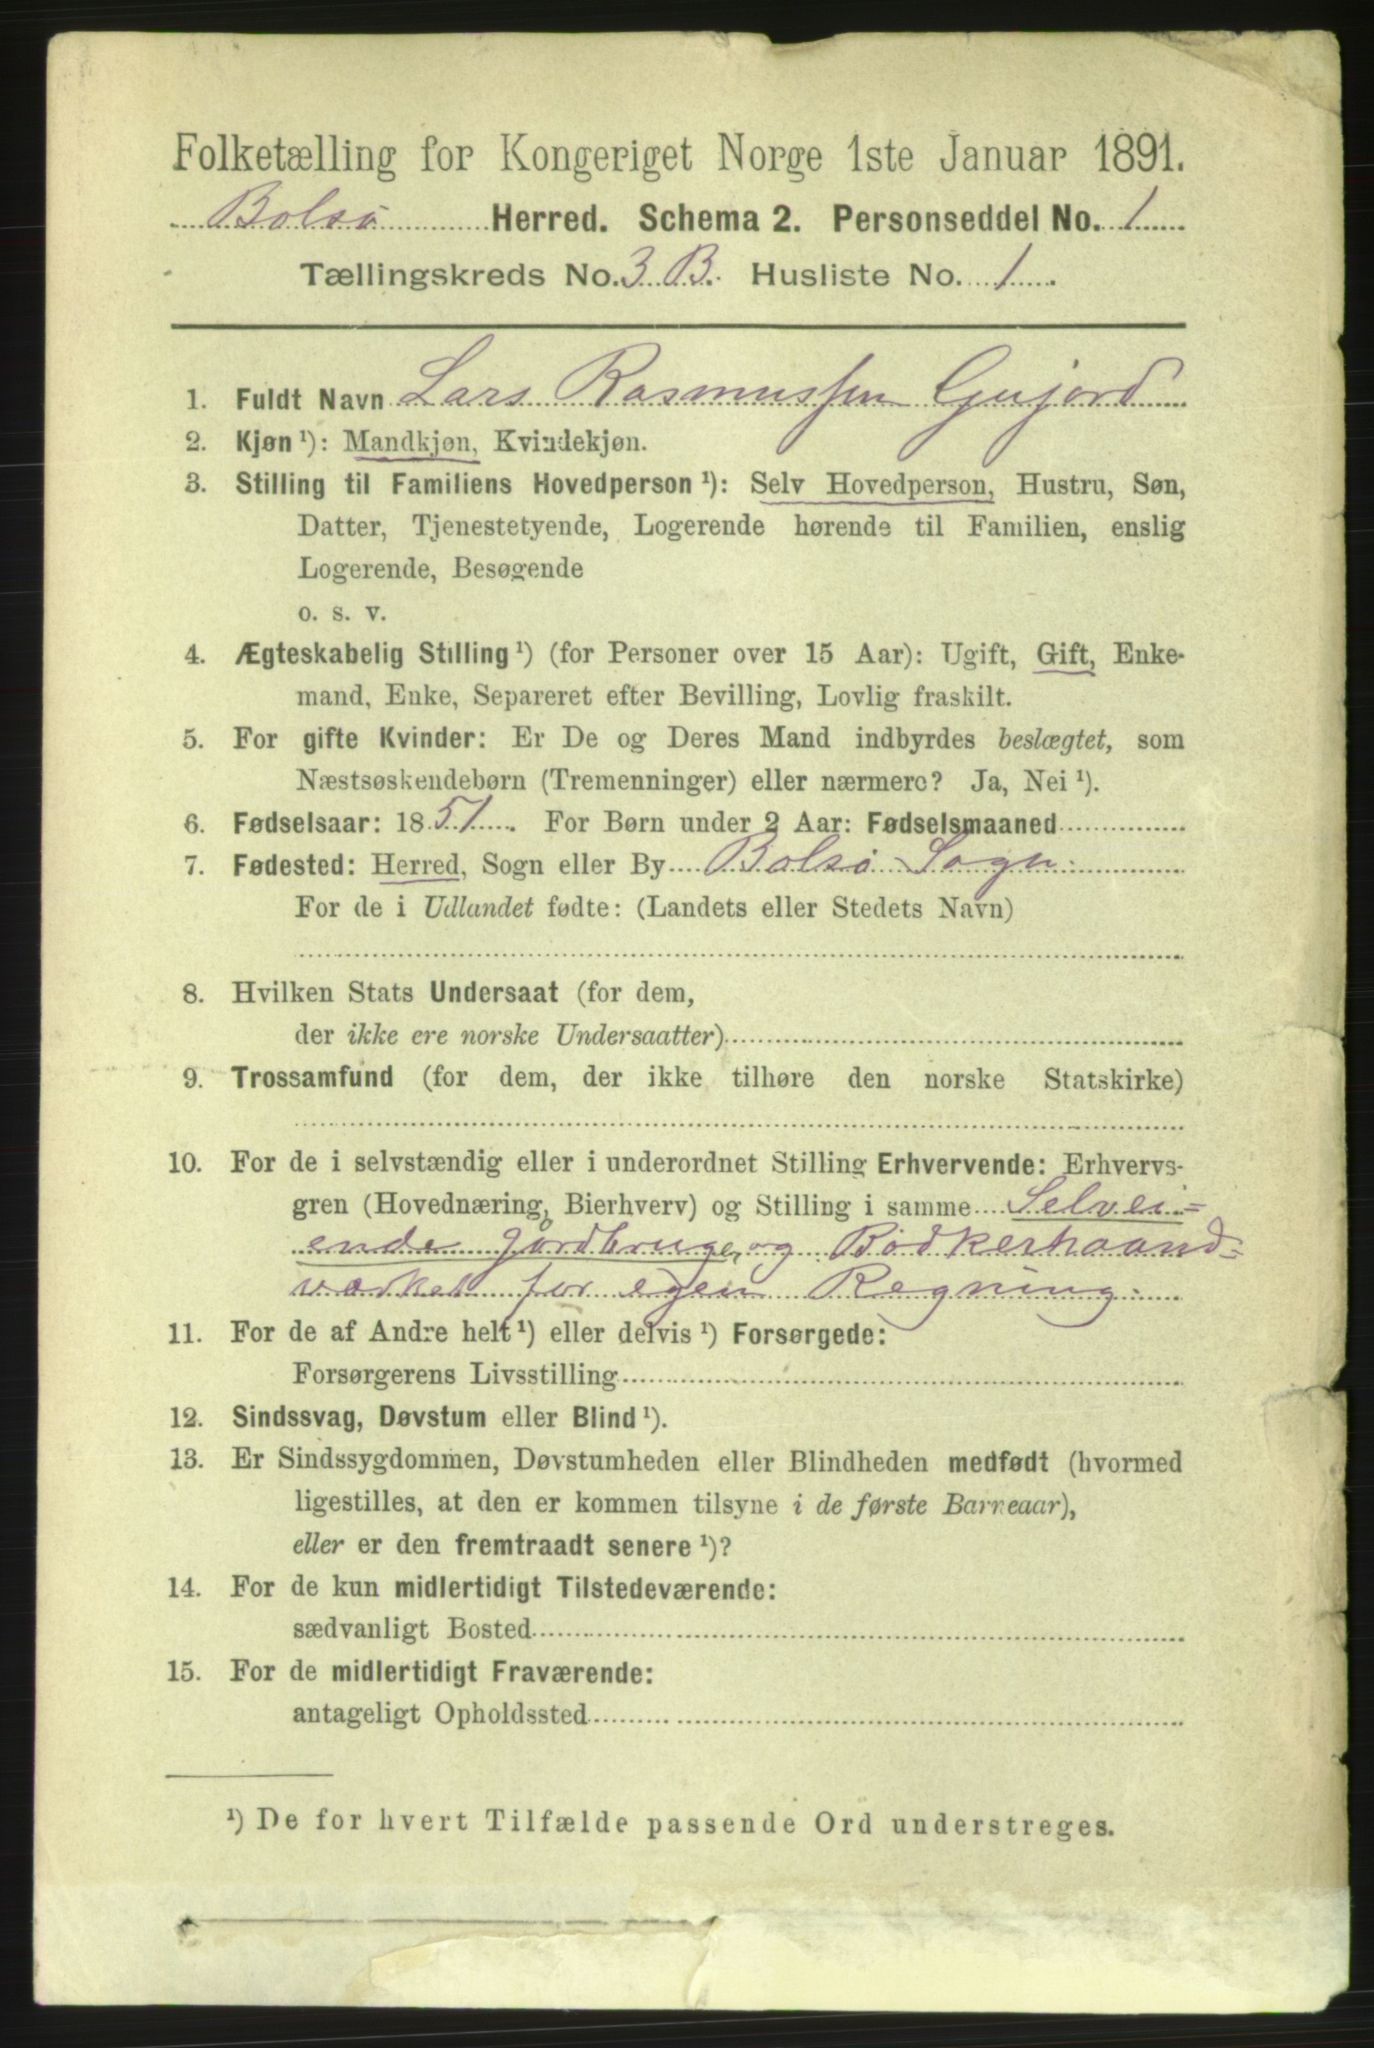 Folketælling for Kongeriget Norge 1ste Januar 1891.
Bolsø Herred. Schema 2. Personseddel No. 1
Tællingskreds No. 3 B. Husliste No. 1.
1. Fuldt Navn Lars Rasmussen Gujord
2. Kjøn ¹): Mandkjøn, Kvindekjøn.
3. Stilling til Familiens Hovedperson ¹): Selv Hovedperson, Hustru, Søn,
Datter, Tjenestetyende, Logerende hørende til Familien, enslig
Logerende, Besøgende
o. s. v.
4. Ægteskabelig Stilling ¹) (for Personer over 15 Aar): Ugift, Gift, Enke-
mand, Enke, Separeret efter Bevilling, Lovlig fraskilt.
5. For gifte Kvinder: Er De og Deres Mand indbyrdes beslægtet, som
Næstsøskendebørn (Tremenninger) eller nærmere? Ja, Nei ¹).
6. Fødselsaar: 1851. For Børn under 2 Aar: Fødselsmaaned
7. Fødested: Herred, Sogn eller By Bolsø Sogn.
For de i Udlandet fødte: (Landets eller Stedets Navn)
8. Hvilken Stats Undersaat (for dem,
der ikke ere norske Undersaatter)
9. Trossamfund (for dem, der ikke tilhøre den norske Statskirke)
10. For de i selvstændig eller i underordnet Stilling Erhvervende: Erhvervs-
gren (Hovednæring, Bierhverv) og Stilling i samme Selvei=
ende Jordbruger, og Bødkerhaand=
værket for egen Regning.
11. For de af Andre helt ¹) eller delvis ¹) Forsørgede:
Forsørgerens Livsstilling
12. Sindssvag, Døvstum eller Blind ¹).
13. Er Sindssygdommen, Døvstumheden eller Blindheden medfødt (hvormed
ligestilles, at den er kommen tilsyne i de første Barneaar),
eller er den fremtraadt senere ¹)?
14. For de kun midlertidigt Tilstedeværende:
sædvanligt Bosted
15. For de midlertidigt Fraværende:
antageligt Opholdssted
¹) De for hvert Tilfælde passende Ord understreges.